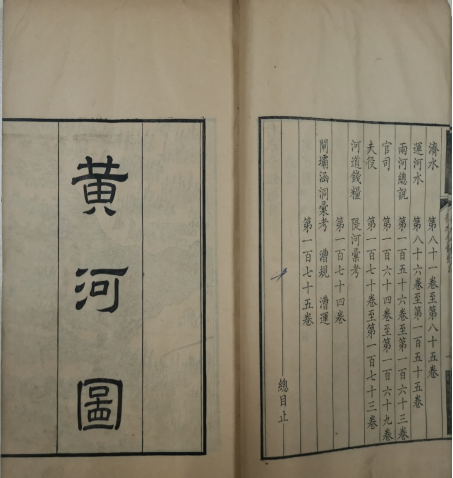 濟水　第八十一卷至第八十五卷
運河水　第八十六卷至第一百五十五卷
兩河總說　第一百五十六卷至第一百六十三卷
官司　第一百六十四卷至第一百六十九卷
夫役　第一百七十卷至第一百七十三卷
河道錢糧　隄河彙考　第一百七十四卷
閘壩涵洞彙考　漕規　漕運　第一百七十五卷
總目止
黄河圖